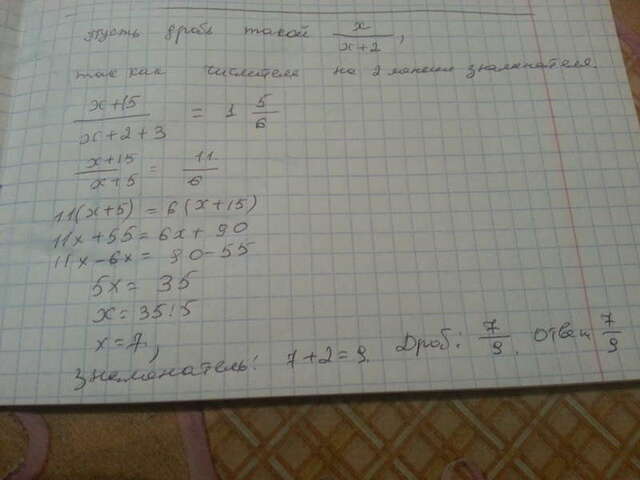 Пусть дробь такой x/(x+2),
так как числитель на 2 меньше знаменателя.
(x+15)/(x+2+3) = 1 5/6
(x+15)/(x+5) = 11/6
11(x+5) = 6(x+15)
11x+55=6x+90
11x-6x=90-55
5x=35
x=35:5
x=7,
знаменатель: 7+2=9. Дроб: 7/9. Ответ 7/9